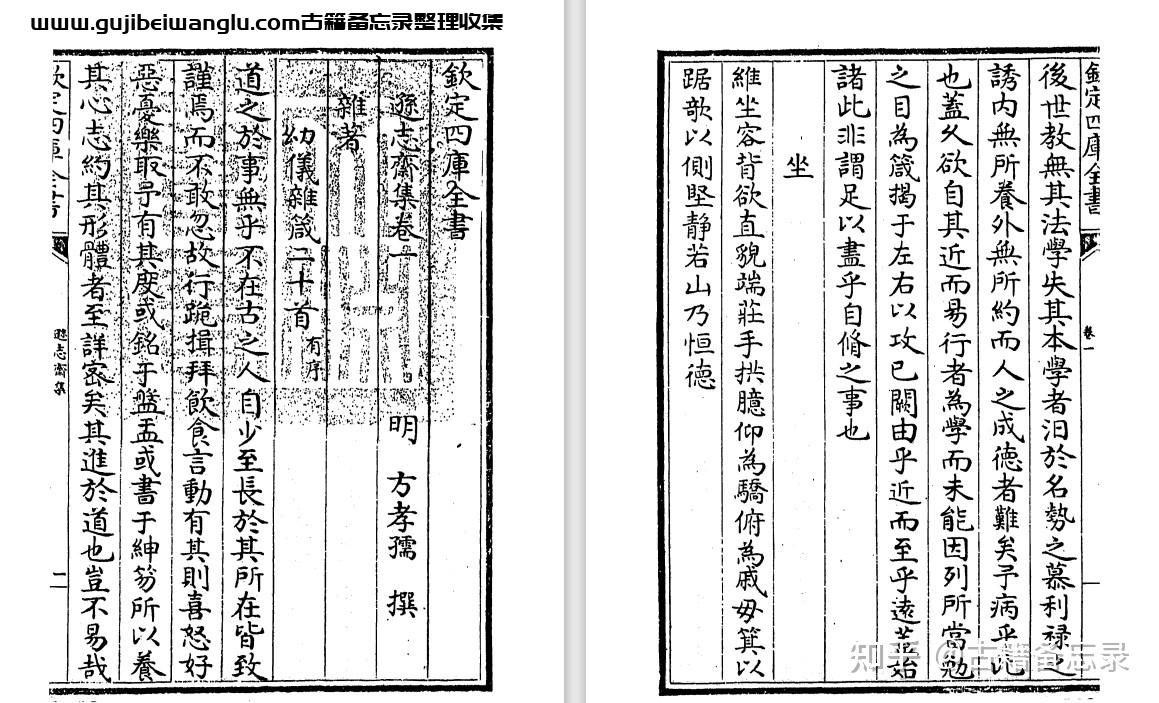 www.gujibeiwanglu.com古籍备忘录整理收集
欽定四庫全書
遜志齋集卷一
明 方孝孺 撰
雜著
幼儀雜箴二十首 有序
道之於事無乎不在古之人自少至長於其所在皆致
謹焉而不敢忽故行跪揖拜飲食言動有其則喜怒好
惡憂樂取予有其度或銘于盤盂或書于紳笏所以養
其心志約其形體者至詳密矣其進於道也豈不易哉
欽定四庫全書
遜志齋集
一
欽定四庫全書
卷一
後世教無其法學失其本學者汩於名勢之慕利祿之
誘内無所養外無所約而人之成德者難矣予病乎此
也蓋久欲自其近而易行者為學而未能因列所當勉
之目為箴揭于左右以攻已闕由乎近而至乎逺葢始
諸此非謂足以盡乎自脩之事也
坐
維坐容背欲直貌端莊手拱臆仰為驕俯為戚毋箕以
踞欹以側堅静若山乃恒德
知乎 @古籍备忘录